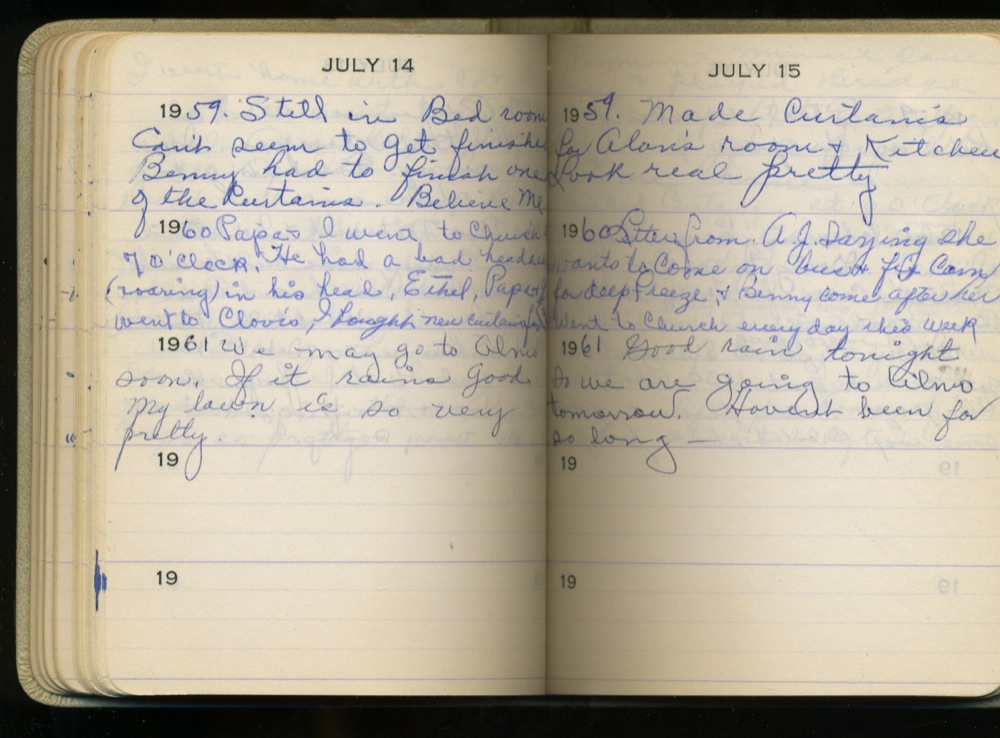 JULY 14
1959. Still in Bed room
Can't seem to get finishe
Benny had to finish one
of the Curtains. Believe Me
1960 Papa & I went to Church
7 o'clock. He had a bad headac
(roaring) in his head, Ethel, Papa &
went to Clovis, I bought new curtains for
1961 We may go to Olmo
soon. If it rains Good
My lawn is so very
pretty
19
19
JULY 15
1959. Made Curtains
for Alan's room & Kitchen
Look real pretty
1960 Letter from A.J. Saying she
wants to Come on bus & fix Corn
for deep freeze, & Benny come after her
Went to Church every day this week
1961 Good rain tonight
So we are going to Olmo
tomorrow. Haven't been for
so long —
19
19